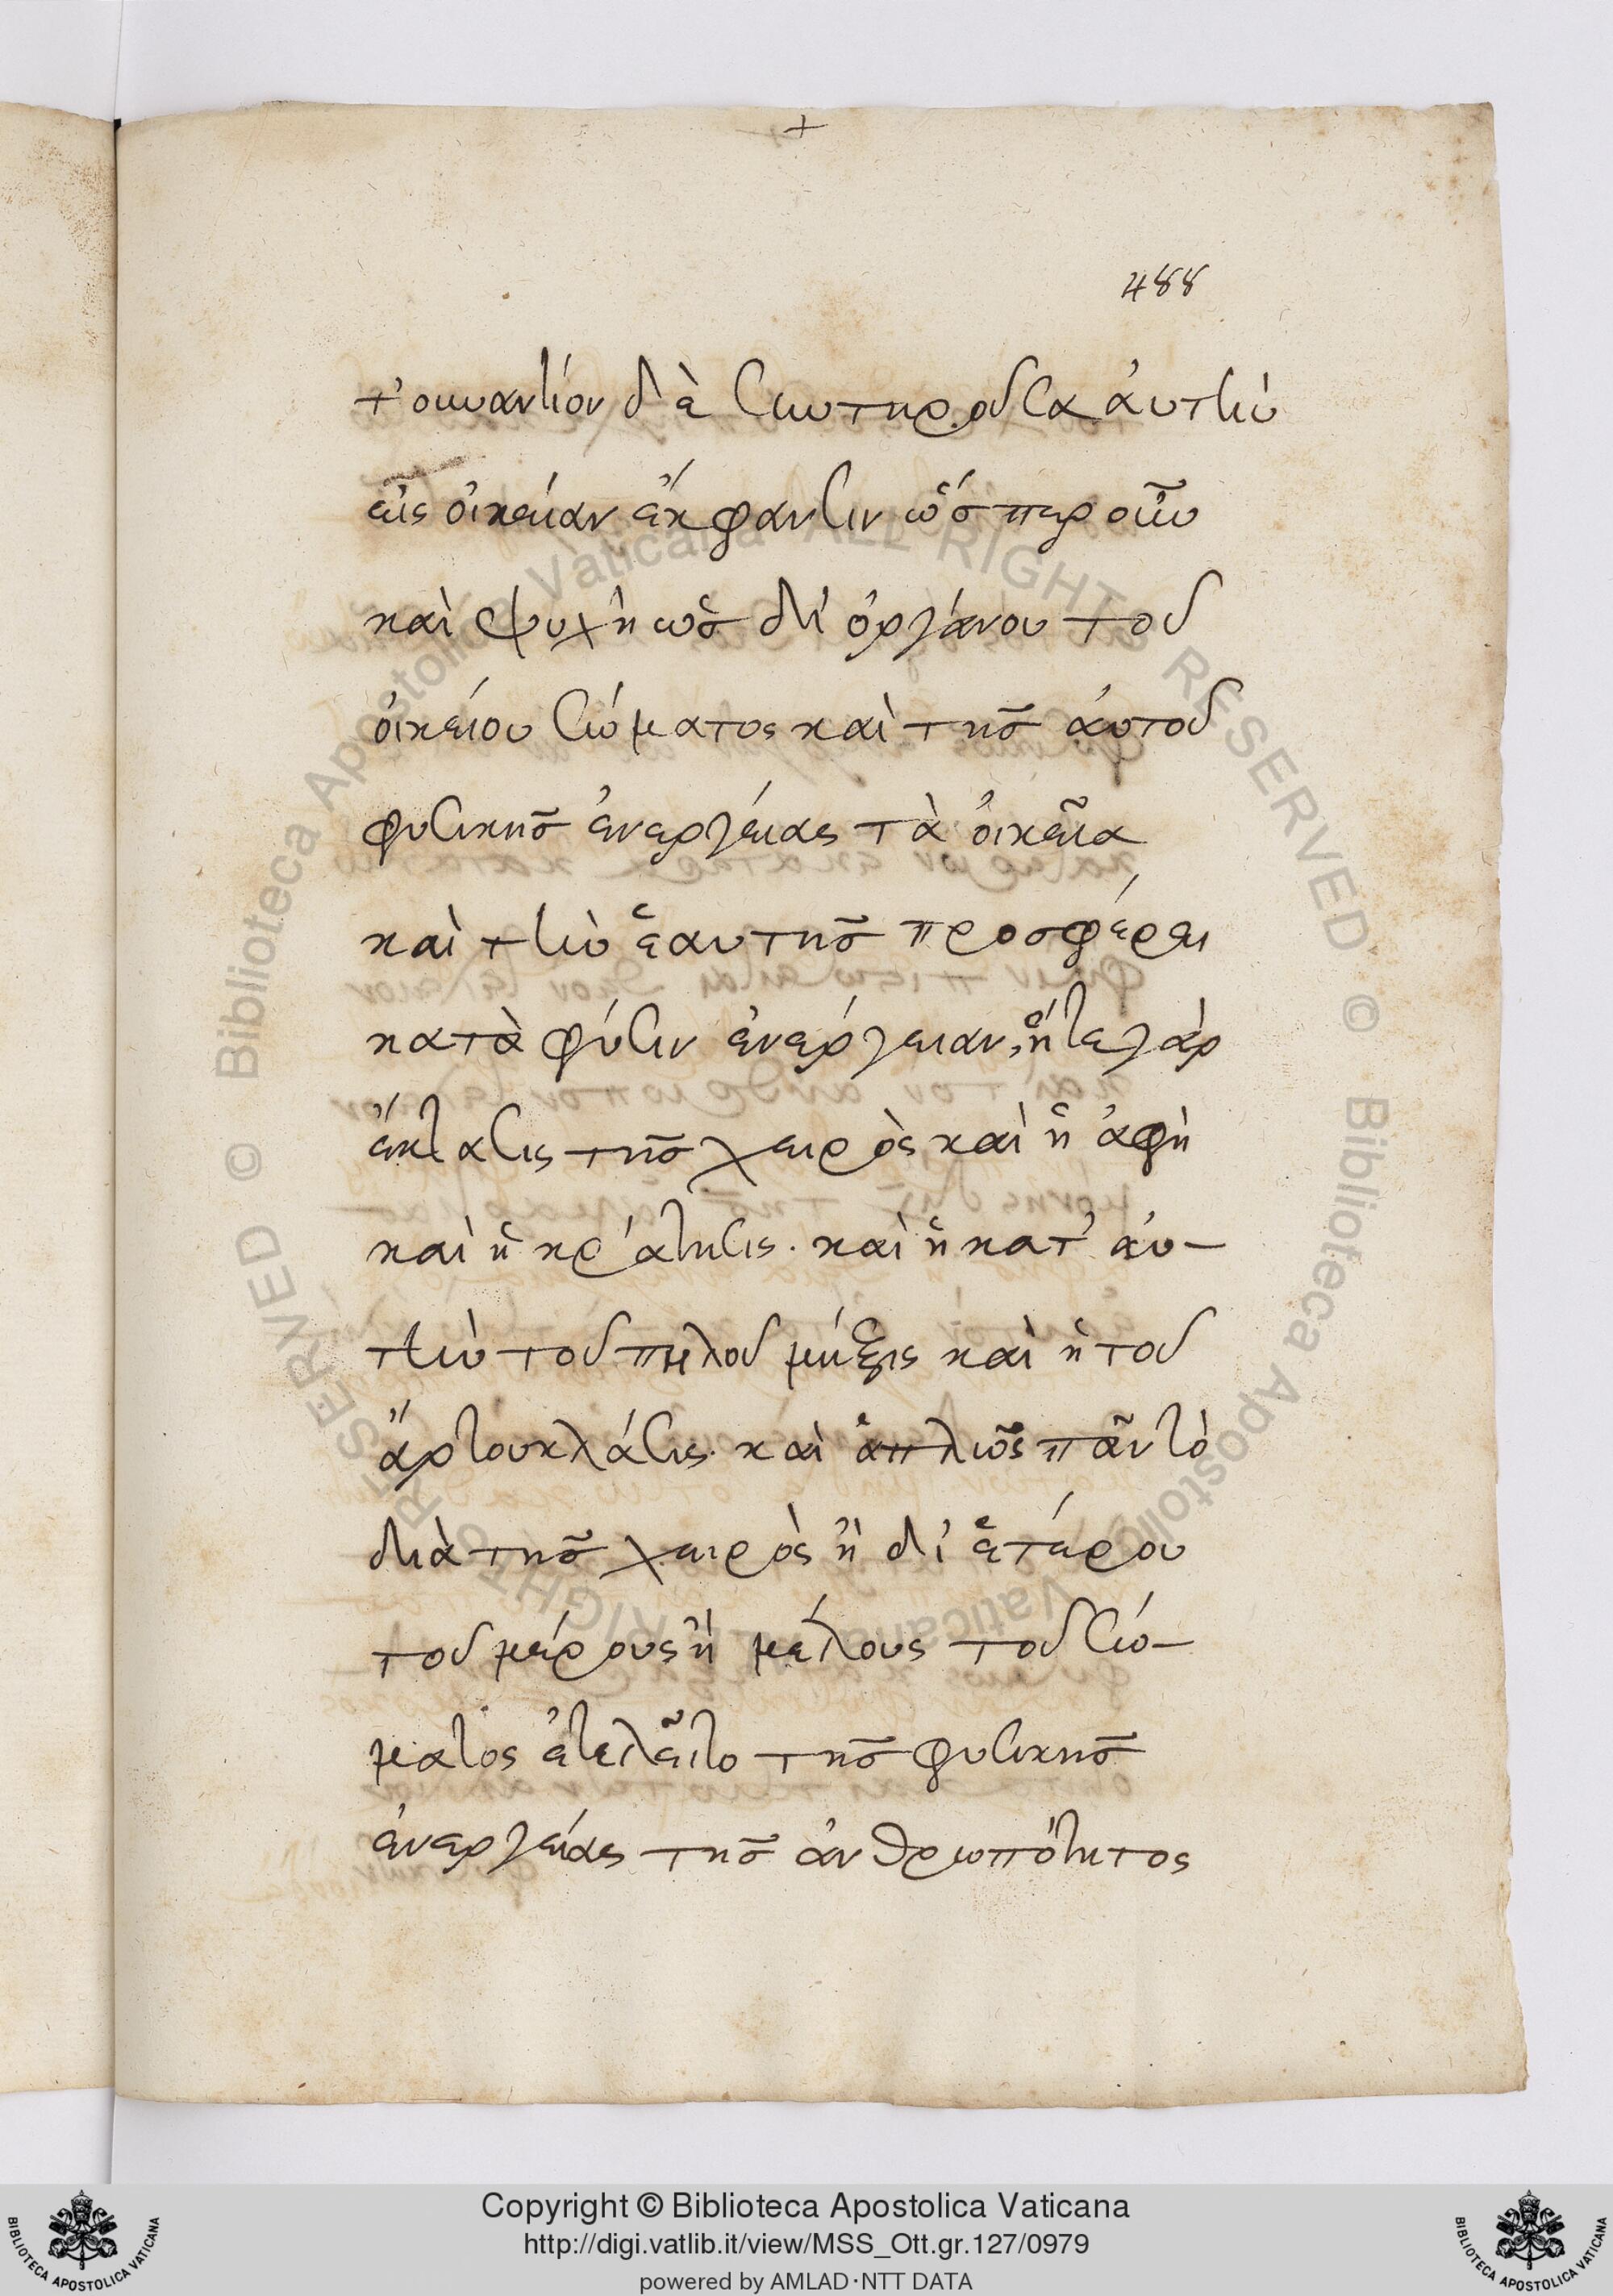 +
488
τ' οὐναντίον δὲ συντηροῦσα ἀυτὴν
εἰς οἰκείαν ἔκφανσιν ὥσπερ οὖν
καὶ ψυχὴ ὡς δι' ὀργάνου τοῦ
οἰκείου σώματος καὶ τῆς ἀυτοῦ
φυσικῆς ἐνεργείας τὰ οἰκεῖα
καὶ τὴν ἑαυτῆς προσφέρει
κατὰ φύσιν ἐνέργειαν, ἥτε γὰρ
ἔκτασις τῆς χειρὸς καὶ ἡ ἁφὴ
καὶ ἡ κράτησις. καὶ ἡ κατ' ἀυ-
τὴν τοῦ πηλοῦ μίξις καὶ ἡ τοῦ
ἄρτου κλάσις. καὶ ἁπλῶς πᾶν τὸ
διὰ τῆς χειρὸς ἢ δι' ἑτέρου
του μέρους ἢ μέλους τοῦ σώ-
ματος ἐτελεῖτο τῆς φυσικῆς
ἐνεργείας τῆς ἀνθρωπότητος
Copyright © Biblioteca Apostolica Vaticana
http://digi.vatlib.it/view/MSS_Ott.gr.127/0979
powered by AMLAD·NTT DATA
BIBLIOTECA APOSTOLICA VATICANA
BIBLIOTECA APOSTOLICA VATICANA
© Biblioteca Apostolica Vaticana ALL RIGHTS RESERVED © Biblioteca Apostolica Vaticana ALL RIGHTS RESERVED